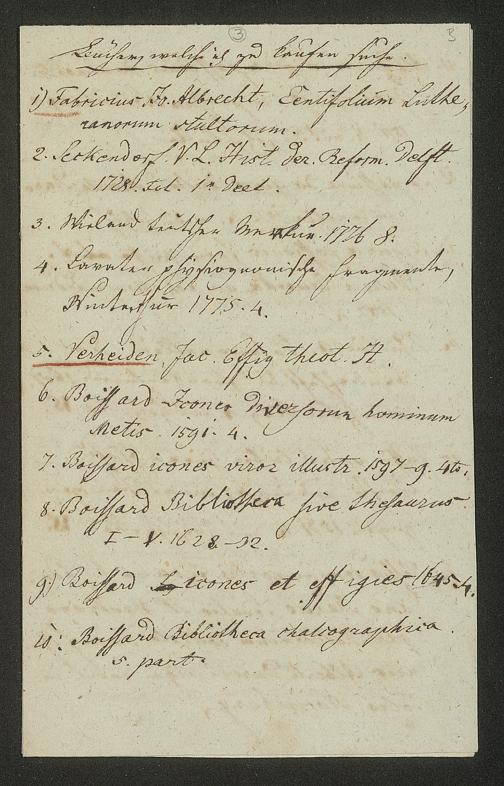 3
Bücher, welche ich zu kaufen suche.
1) Fabricius, Fr. Albrecht, Centifolium Luthe,
ranorum stultorum.
2. Seckendorf. V. L. Hist. der. Reform. Delft.
1728. fol. 1e Deel.
3. Wieland teutscher Merkur. 1776 8.
4. Lavater physiognomische Fragmente,
Winterthur 1775. 4.
5. Verheiden, Jac. Effig theol. H.
6. Boissard Icones Diversorum hominum
Metis 1591. 4.
7. Boissard icones viror illustr. 1597-9. 4to.
8. Boissard Bibliotheca sive thesaurus
I – V. 1628-32.
9) Boissard icones et effigies 1645. 4.
10: Boissard Bibliotheca chalcographica.
5. part.